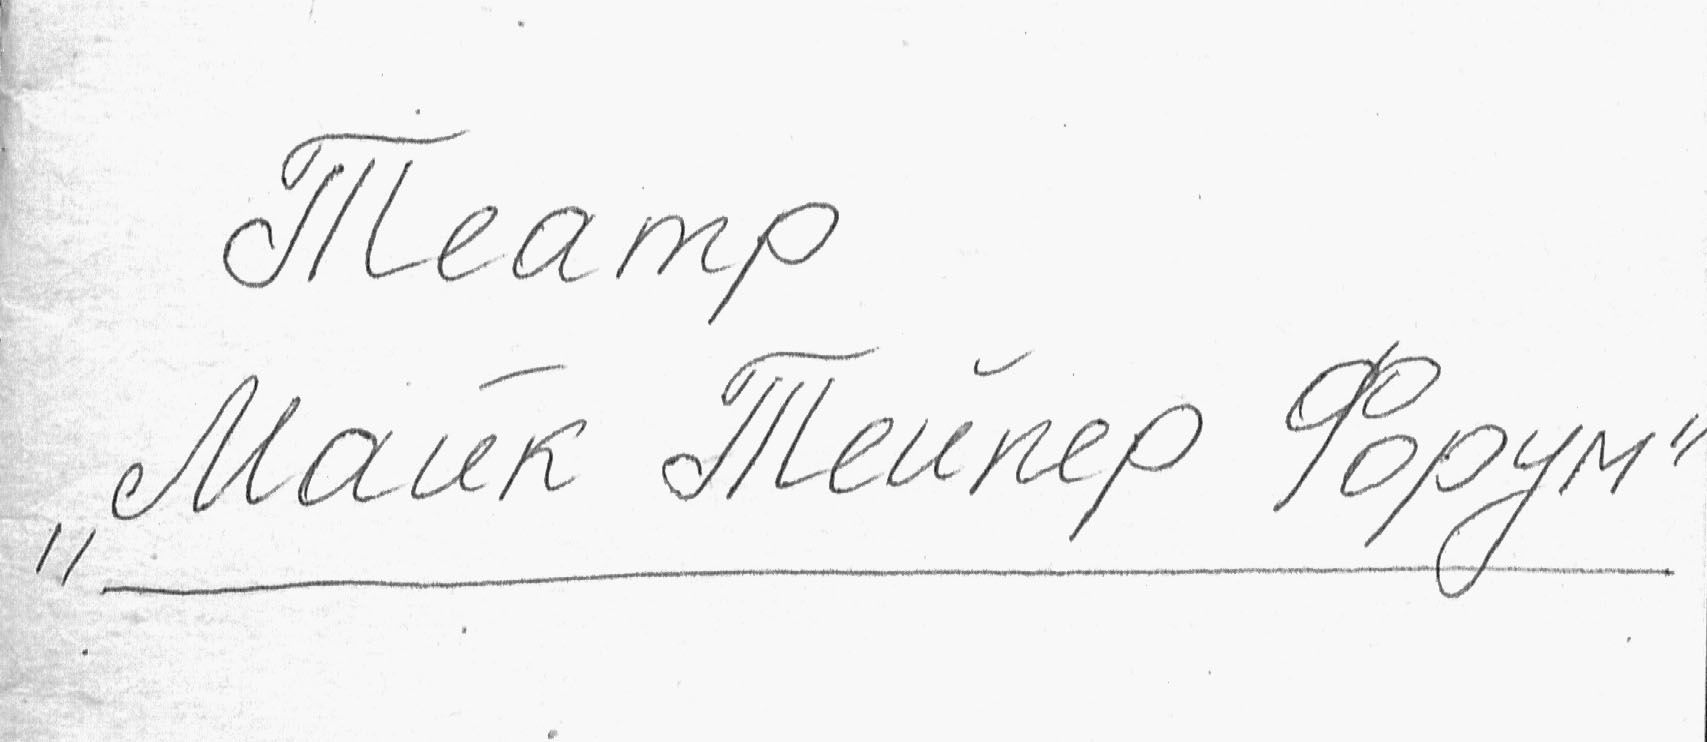 Театр
„Майк Тейпер Форум"